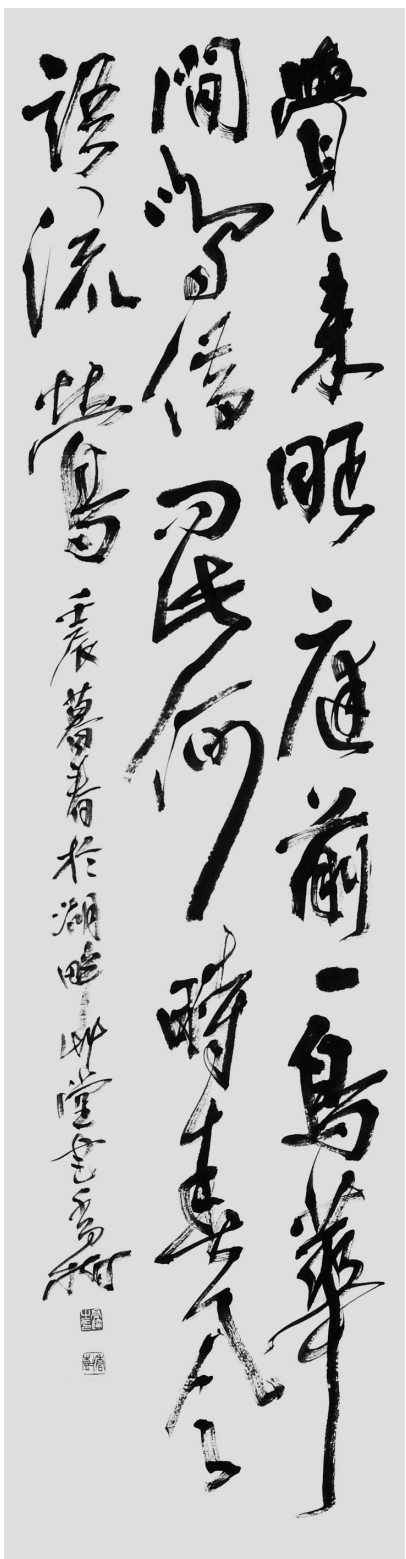 覺来眄庭前一鳥華
間鳴借問此何時春風
語流鶯 壬辰暮春於湖畔艸堂